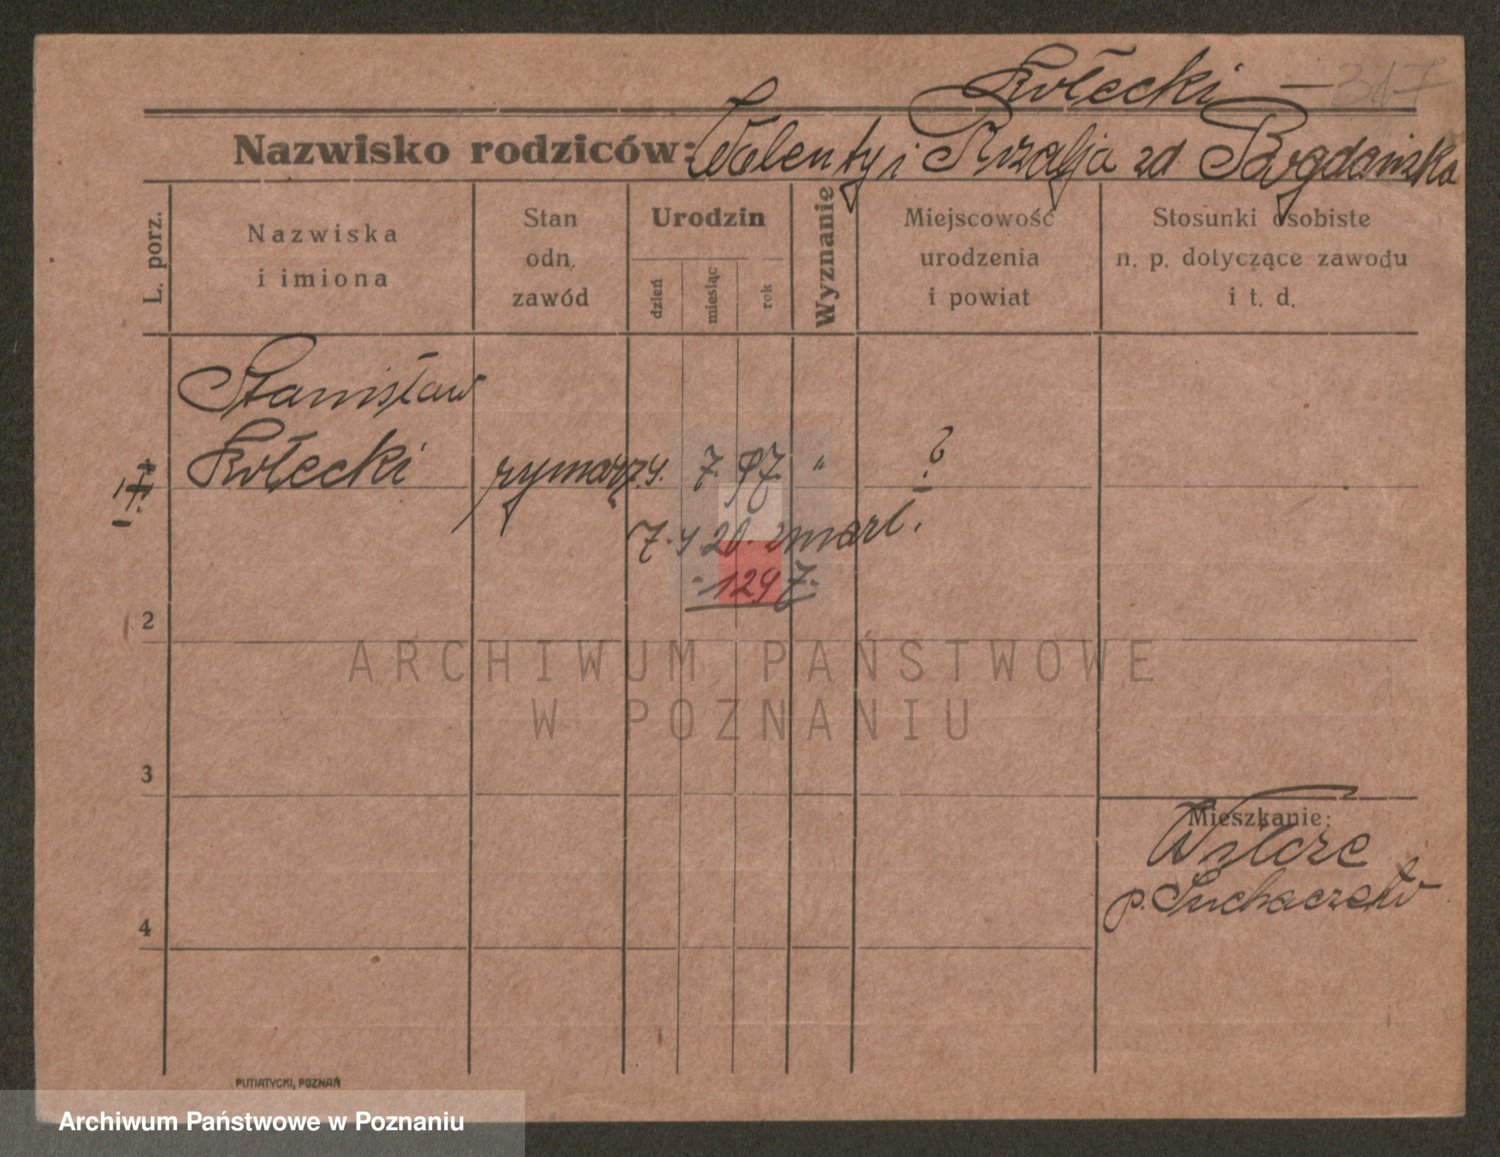 Kołecki – 317
Nazwisko rodziców: Walenty i Rozalja zd Bogdańska
L. porz.
Nazwiska
i imiona
Stan
odn.
zawód
Urodzin
dzień
miesiąc
rok
Wyznanie
Miejscowość
urodzenia
i powiat
Stosunki osobiste
n. p. dotyczące zawodu
i t. d.
Stanisław
Kołecki rymarz 7. 97. " ?
7. 4 20. zmarł.
1297.
2
3
4
Mieszkanie:
p. Suchaczew
PUTIATYCKI, POZNAŃ
ARCHIWUM PAŃSTWOWE
W POZNANIU
Archiwum Państwowe w Poznaniu